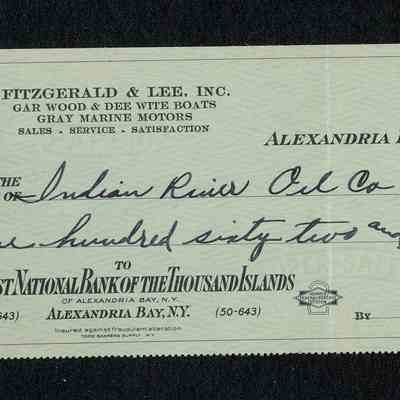 FITZGERALD & LEE, INC.
GAR WOOD & DEE WITE BOATS
GRAY MARINE MOTORS
SALES - SERVICE - SATISFACTION
ALEXANDRIA
THE
OF Indian River Oil Co
hundred sixty two and
TO
ST NATIONAL BANK OF THE THOUSAND ISLANDS
OF ALEXANDRIA BAY, N.Y.
643) ALEXANDRIA BAY, N.Y. (50-643) BY
Insured against fraudulent alteration
TODD BANKERS SUPPLY N.Y.